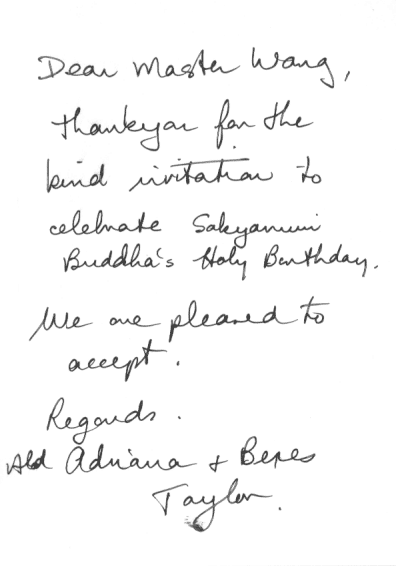 Dear Master Wang,
thankyou for the
kind invitation to
celebrate Sakyamuni
Buddha's Holy Birthday.
We are pleased to
accept.
Regards.
Ald Adriana + Beres
Taylor.